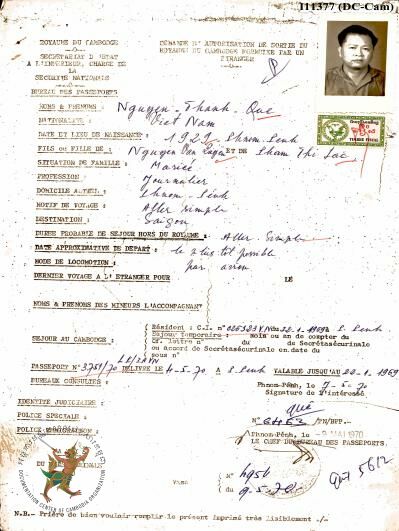 111377 (DC-Cam)
ROYAUME DU CAMBODGE
DEMANDE D'AUTORISATION DE SORTIE DU
SECRETARIAT D'ETAT
ROYAUME DU CAMBODGE FORMULEE PAR UN
A L'INTERIEUR, CHARGE DE
ETRANGER
LA
SECURITE NATIONALE
BUREAU DES PASSEPORTS
NOMS & PRENOMS : Nguyen-Thanh-Que
NATIONALITE : Viet Nam
DATE ET LIEU DE NAISSANCE : 1924 Phnom-Penh
FILS ou FILLE de : Nguyen Van ET DE Pham Thi Lac
SITUATION DE FAMILLE : Marié
PROFESSION : Journalier
DOMICILE ACTUEL : Phnom-Pénh
MOTIF DE VOYAGE : Aller simple
DESTINATION : Saigon
DUREE PROBABLE DE SEJOUR HORS DU ROYAUME : Aller Simple
DATE APPROXIMATIVE DE DEPART : le plus tot possible
MODE DE LOCOMOTION : par avion
DERNIER VOYAGE A L'ETRANGER POUR : LE
NOMS & PRENOMS DES MINEURS L'ACCOMPAGNANT
Résident : C.I. n° du 22-1-1969 P. Penh
Séjour temporaire : mois ou an de compter du
SEJOUR AU CAMBODGE :
Cf. lettre n° du du Secrétasécurinale
ou accord de Secrétasécurinale en date du
sous n°
PASSEPORT N° 3751/70 DELIVRE LE 4-5-70 A P. Penh VALABLE JUSQU'AU 22-1-1969
BUREAUX CONSULTES :
Phnom-Pénh, le 7-5-70
Signature de l'intéressé.
IDENTITE JUDICIAIRE :
Qué
POLICE SPECIALE :
N° 6463 /PN/BPP.-
POLICE IMMIGRATION :
Phnom-Pénh, le MAI 1970
LE CHEF DU BUREAU DES PASSEPORTS,
N° 4956
9-5-70
DOCUMENTATION CENTER OF CAMBODIA ORGANIZATION
N.B.- Prière de bien vouloir remplir le présent imprimé très lisiblement ./-